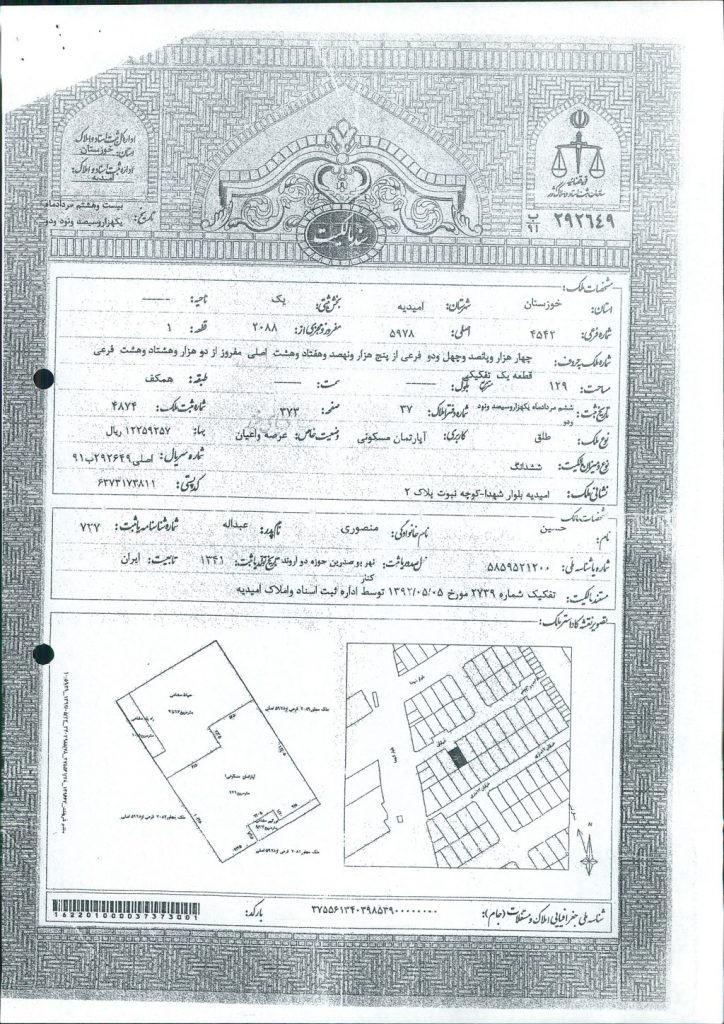 اداره کل ثبت اسناد و املاک
استان: خوزستان
اداره ثبت اسناد و املاک:
امیدیه
تاریخ: بیست وهشتم مردادماه
یکهزاروسیصد ونود ودو
سند مالکیت
قوه قضائیه
سازمان ثبت اسناد و املاک کشور
۲۹۲۶۴۹ ب ۹۱
مشخصات ملک:
استان: خوزستان شهرستان: امیدیه بخش ثبتی: یک ناحیه: -----
شماره فرعی: ۴۵۴۲ اصلی: ۵۹۷۸ مفروز و مجزی از: ۲۰۸۸ قطعه: ۱
شماره ملک بحروف: چهار هزار وپانصد وچهل ودو فرعی از پنج هزار ونهصد وهفتاد وهشت اصلی مفروز از دو هزار وهشتاد وهشت فرعی
قطعه یک تفکیکی
مساحت: ۱۲۹ متر مربع بطول: ----- سمت: ----- طبقه: همکف
تاریخ ثبت: ششم مردادماه یکهزاروسیصد ونود ودو شماره دفتر املاک: ۳۷ صفحه: ۳۷۳ شماره ثبت ملک: ۴۸۷۴
نوع ملک: طلق کاربری: آپارتمان مسکونی وضعیت خاص: عرصه واعیان بها: ۱۲۲۵۹۲۵۷ ریال
نوع و میزان مالکیت: ششدانگ شماره سریال: اصلی۲۹۲۶۴۹ب۹۱
نشانی ملک: امیدیه بلوار شهدا-کوچه نبوت پلاک ۲ کد پستی: ۶۳۷۳۱۷۳۸۱۱
مشخصات مالک
نام: حسین نام خانوادگی: منصوری نام پدر: عبداله شماره شناسنامه یا ثبت: ۷۲۷
شماره یا شناسه ملی: ۵۸۵۹۵۲۱۲۰۰ محل صدور یا ثبت: نهر بوصدرین حوزه دو اروند کنار تاریخ تولد یا ثبت: ۱۳۴۱ تابعیت: ایران
مستند مالکیت: تفکیک شماره ۲۷۳۹ مورخ ۱۳۹۲/۰۵/۰۵ توسط اداره ثبت اسناد واملاک امیدیه
تصویر نقشه کاداستر ملک:
حیاط مسکونی
آپارتمان مسکونی۱
N
16220100003737300 1
بارکد:
شناسه ملی جغرافیایی املاک و مستغلات (جام): ۳۷۵۵۶۱۳۴۰۳۹۸۵۳۹۰۰۰۰۰۰۰۰